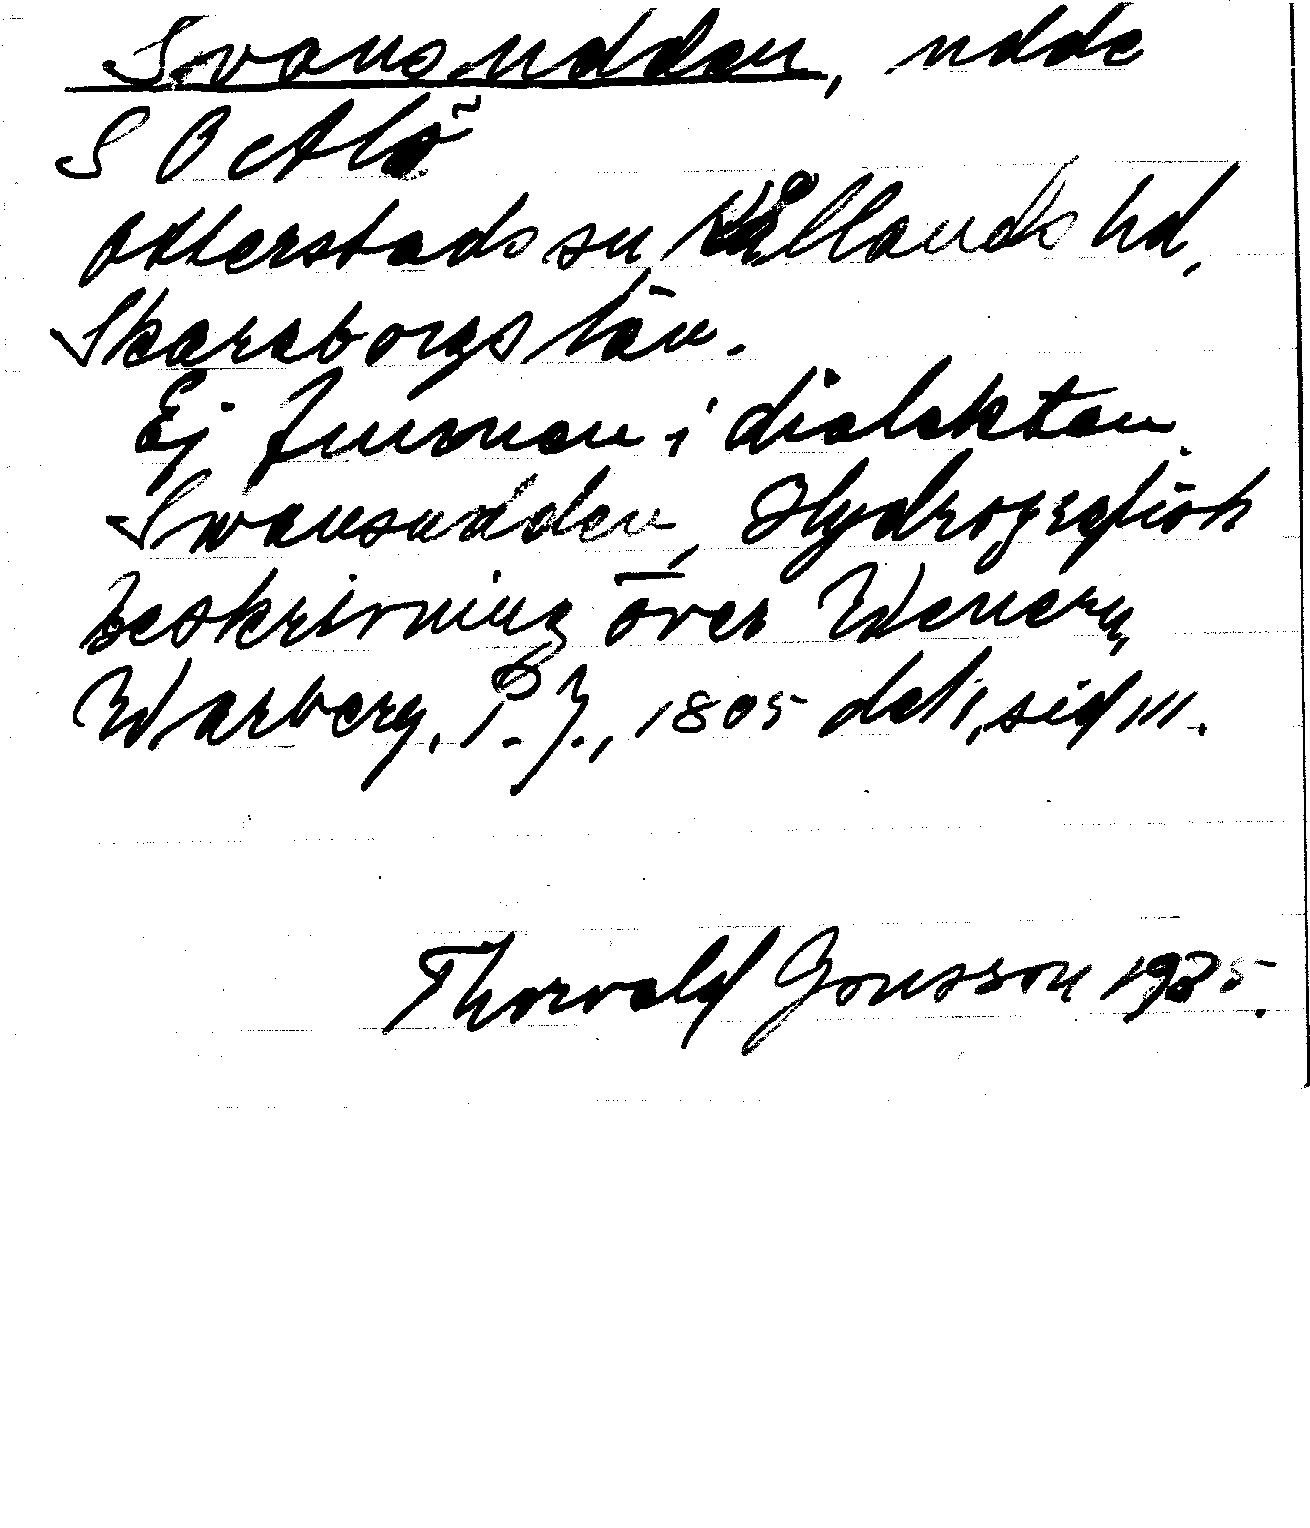 Svansudden, udde
S O Alö
Otterstads sn, Kållands hd,
Skaraborgs län.
Ej funnen i dialekten
Swansudden, Hydrografisk
beskrivning över Wenern,
Warberg, P. J., 1805 del 1, sid 111.
Thorvald Jonsson 1985.